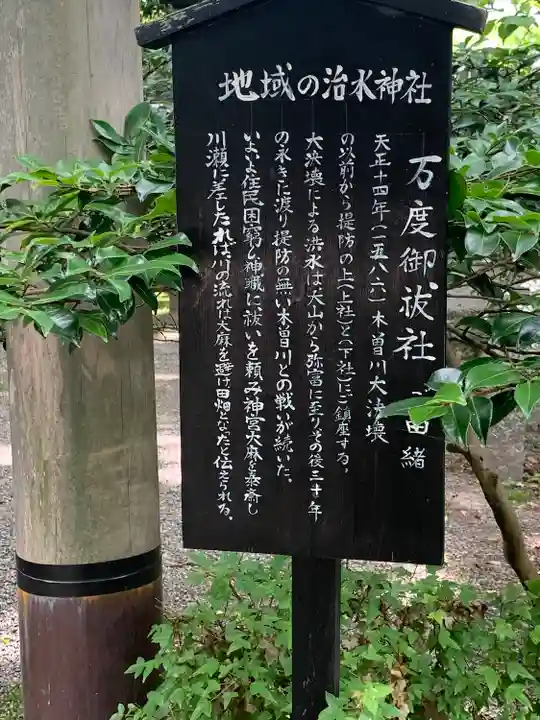 地域の治水神社
万度御祓社 由緒
天正十四年(一五八六)木曽川大決壊
の以前から堤防の上(上社)と(下社)にご鎮座する。
大決壊による洪水は犬山から弥富に至りその後三十年
の永きに渡り堤防の無い木曽川との戦いが続いた。
いよいよ住民困窮し神職に祓いを頼み神宮大麻を奉斎し
川瀬に差したれば、川の流れは大麻を避け田畑となったと伝えられる。